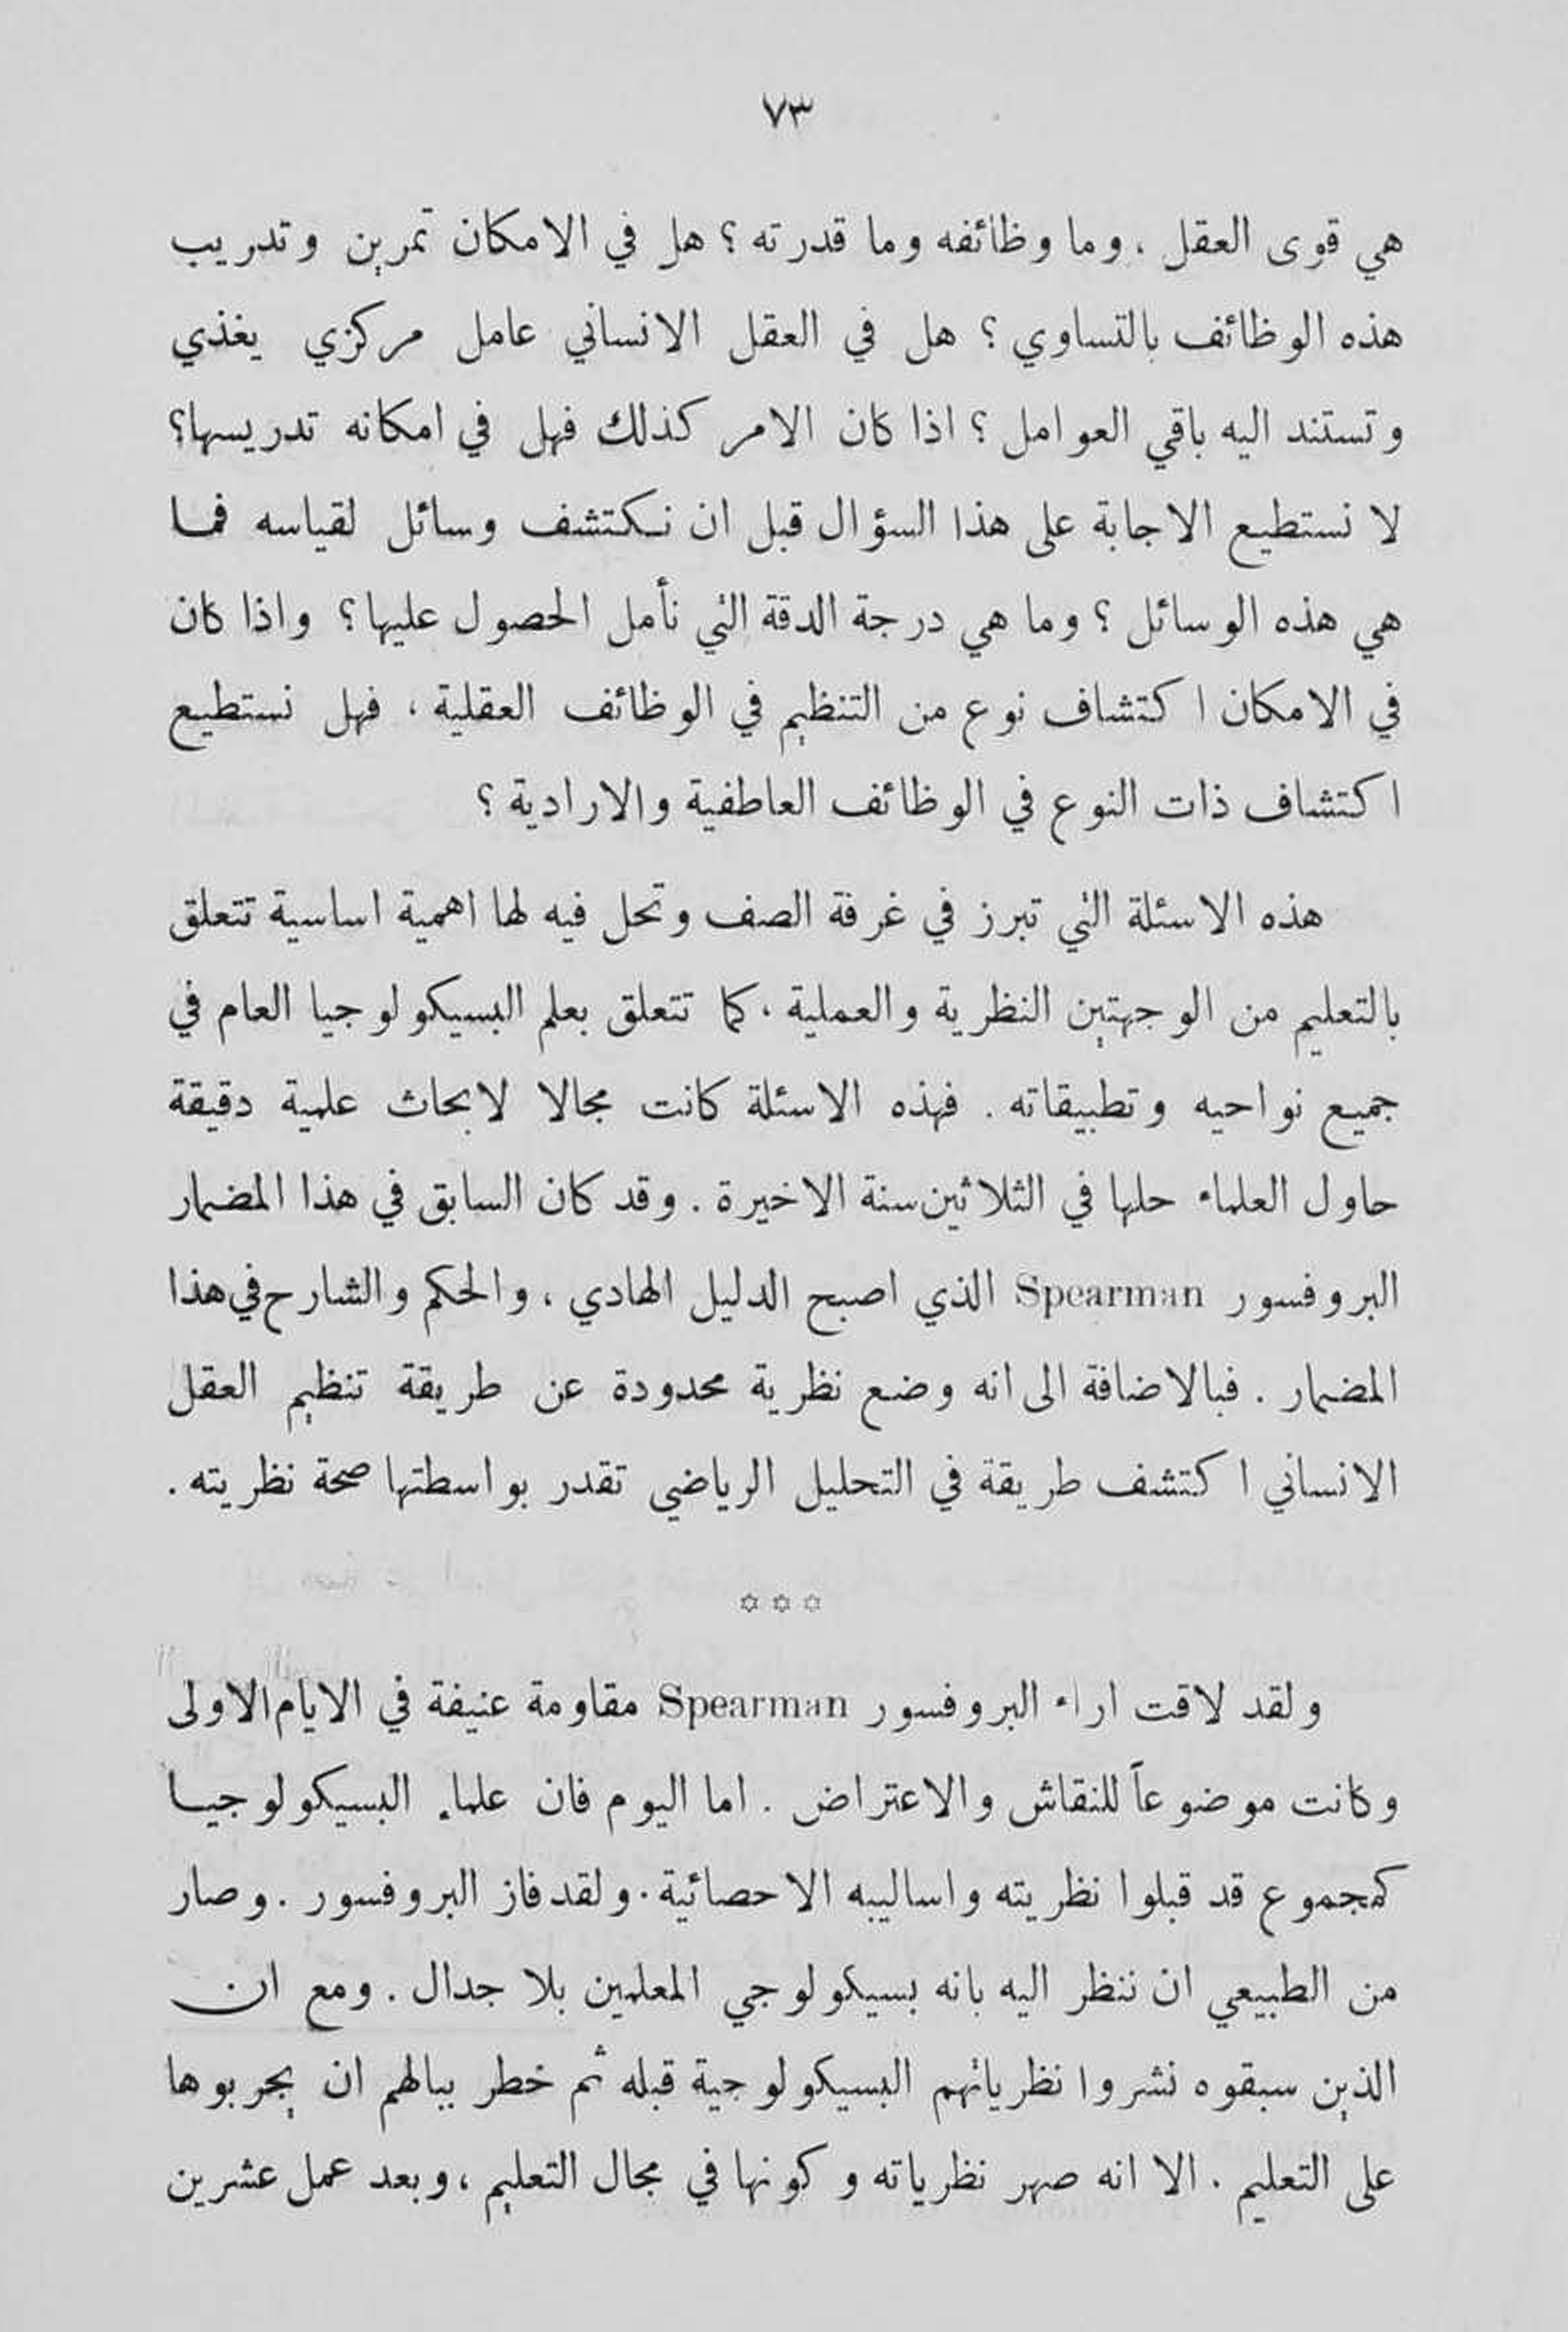 ٧٣
هي قوى العقل ، وما وظائفه وما قدرته ؟ هل في الامكان تمرين وتدريب
هذه الوظائف بالتساوي ؟ هل في العقل الانساني عامل مركزي يغذي
وتستند اليه باقي العوامل ؟ اذا كان الامر كذلك فهل في امكانه تدريسها؟
لا نستطيع الاجابة على هذا السؤال قبل ان نكتشف وسائل لقياسه فما
هي هذه الوسائل ؟ وما هي درجة الدقة التي نأمل الحصول عليها؟ واذا كان
في الامكان اكتشاف نوع من التنظيم في الوظائف العقلية ، فهل نستطيع
اكتشاف ذات النوع في الوظائف العاطفية والارادية ؟
هذه الاسئلة التي تبرز في غرفة الصف وتحل فيه لها اهمية اساسية تتعلق
بالتعليم من الوجهتين النظرية والعملية ، كما تتعلق بعلم البسيكولوجيا العام في
جميع نواحيه وتطبيقاته . فهذه الاسئلة كانت مجالا لابحاث علمية دقيقة
حاول العلماء حلها في الثلاثين سنة الاخيرة . وقد كان السابق في هذا المضمار
البروفسور Spearman الذي اصبح الدليل الهادي ، والحكم والشارح في هذا
المضمار . فبالاضافة الى انه وضع نظرية محدودة عن طريقة تنظيم العقل
الانساني اكتشف طريقة في التحليل الرياضي تقدر بواسطتها صحة نظريته .
✡ ✡ ✡
ولقد لاقت اراء البروفسور Spearman مقاومة عنيفة في الايام الاولى
وكانت موضوعاً للنقاش والاعتراض . اما اليوم فان علماء البسيكولوجيا
كمجموع قد قبلوا نظريته واساليبه الاحصائية . ولقد فاز البروفسور . وصار
من الطبيعي ان ننظر اليه بانه بسيكولوجي المعلمين بلا جدال . ومع ان
الذين سبقوه نشروا نظرياتهم البسيكولوجية قبله ثم خطر ببالهم ان يجربوها
على التعليم . الا انه صهر نظرياته وكونها في مجال التعليم ، وبعد عمل عشرين